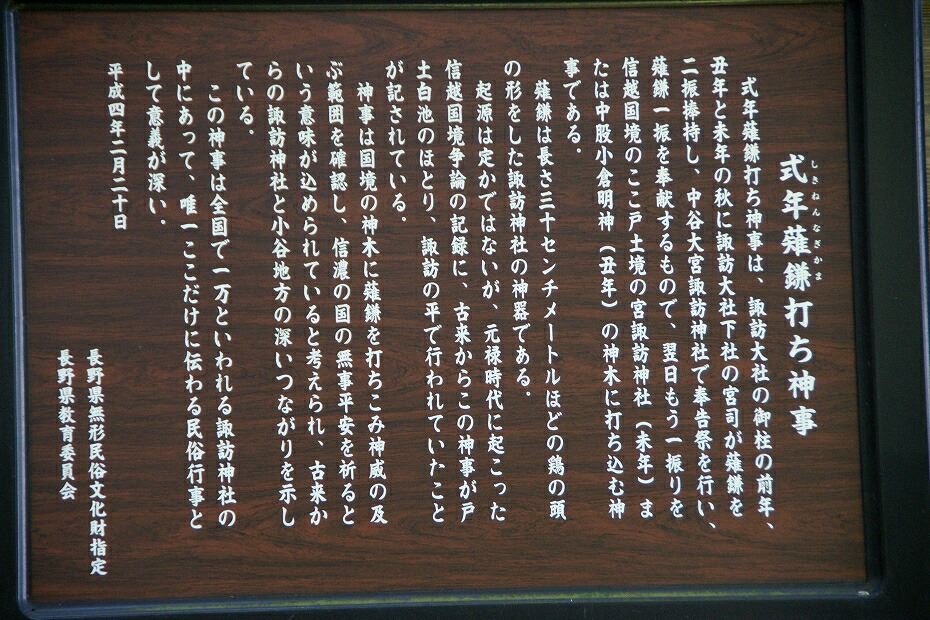 式年薙鎌打ち神事
しきねんなぎかま
式年薙鎌打ち神事は、諏訪大社の御柱の前年、
丑年と未年の秋に諏訪大社下社の宮司が薙鎌を
二振捧持し、中谷大宮諏訪神社で奉告祭を行い、
薙鎌一振を奉献するもので、翌日もう一振りを
信越国境のここ戸土境の宮諏訪神社（未年）ま
たは中股小倉明神（丑年）の神木に打ち込む神
事である。
薙鎌は長さ三十センチメートルほどの鶏の頭
の形をした諏訪神社の神器である。
起源は定かではないが、元禄時代に起こった
信越国境争論の記録に、古来からこの神事が戸
土白池のほとり、諏訪の平で行われていたこと
が記されている。
神事は国境の神木に薙鎌を打ちこみ神威の及
ぶ範囲を確認し、信濃の国の無事平安を祈ると
いう意味が込められていると考えられ、古来か
らの諏訪神社と小谷地方の深いつながりを示し
ている。
この神事は全国で一万といわれる諏訪神社の
中にあって、唯一ここだけに伝わる民俗行事と
して意義が深い。
平成四年二月二十日
長野県無形民俗文化財指定
長野県教育委員会